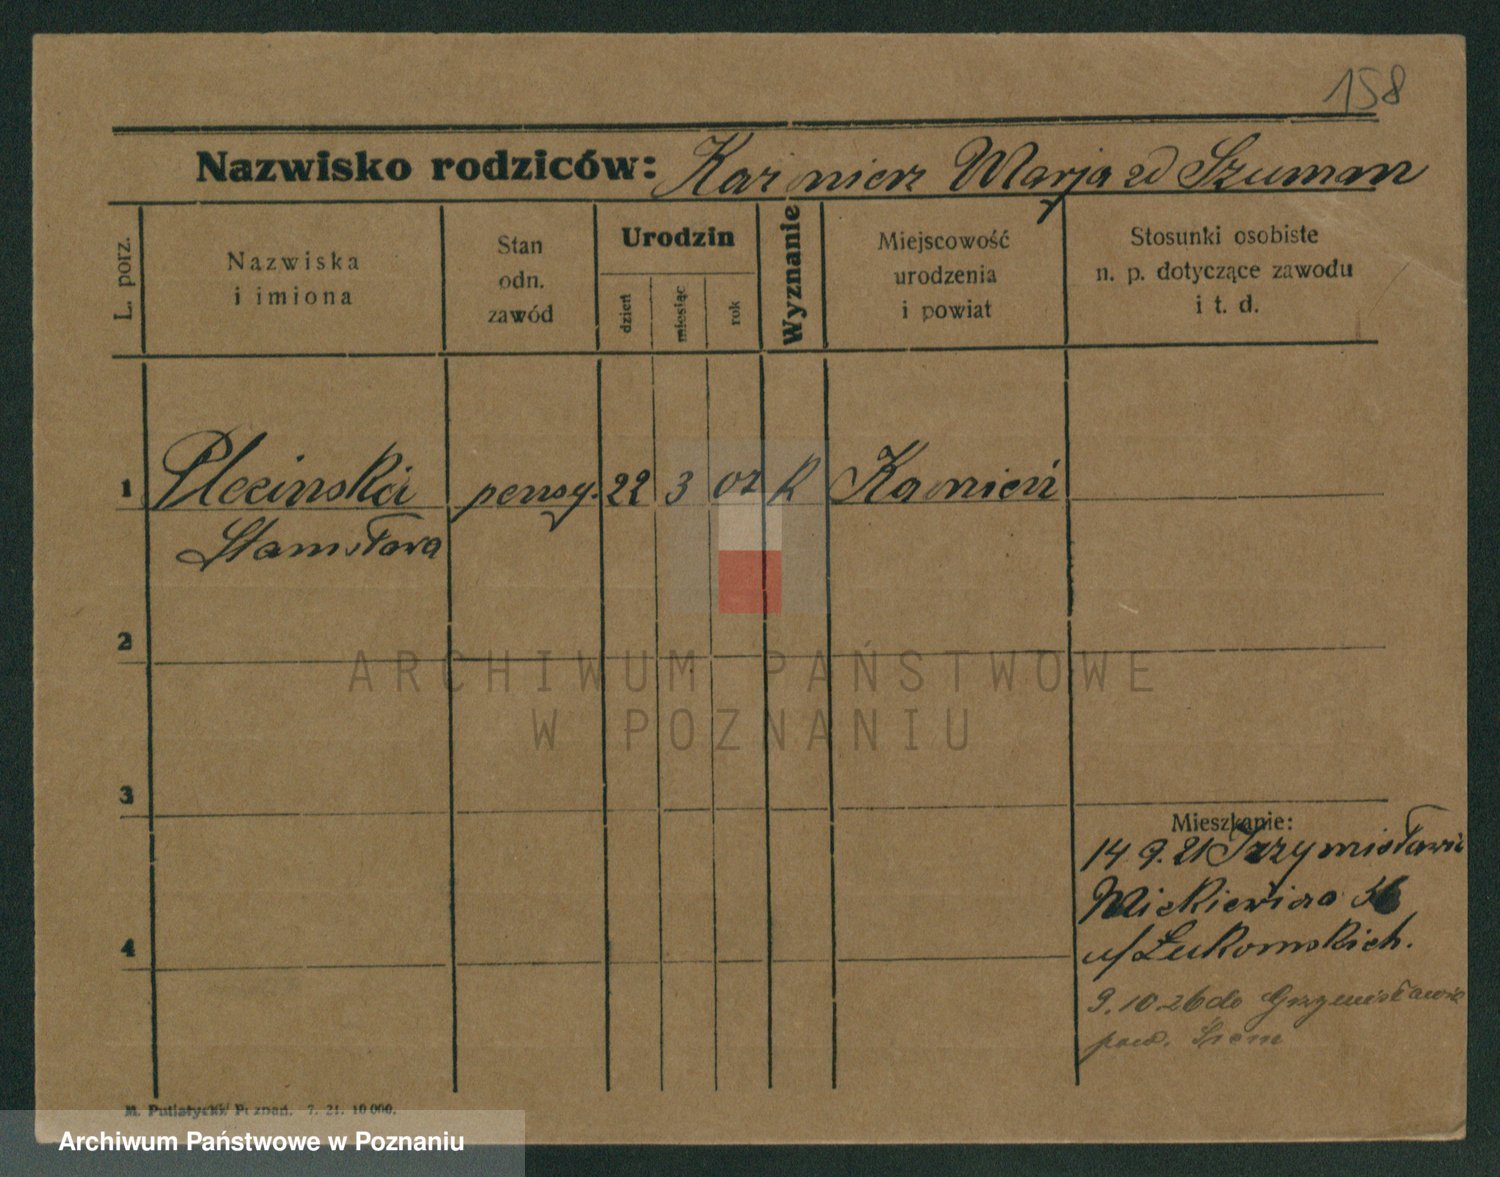 158
Nazwisko rodziców: Kazimierz Marja zd Szuman
L. porz.
Nazwiska
i imiona
Stan
odn.
zawód
Urodzin
dzień
miesiąc
rok
Wyznanie
Miejscowość
urodzenia
i powiat
Stosunki osobiste
n. p. dotyczące zawodu
i t. d.
1 Plecinska pensy. 22 3 07 K Kamień
Stanisława
2
ARCHIWUM PAŃSTWOWE
W POZNANIU
3
Mieszkanie:
14 9. 21
Mickiewicza 36
4
u/Łukomskich.
9. 10. 26 do Grzymisławic
pow. Śrem
M. Putiatycki Poznań. 7. 21. 10 000.
Archiwum Państwowe w Poznaniu